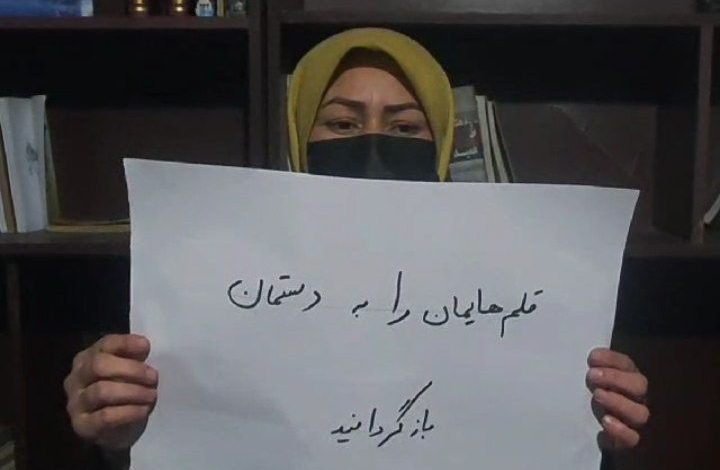 قلم‌هایمان را به دستمان
بازگردانید